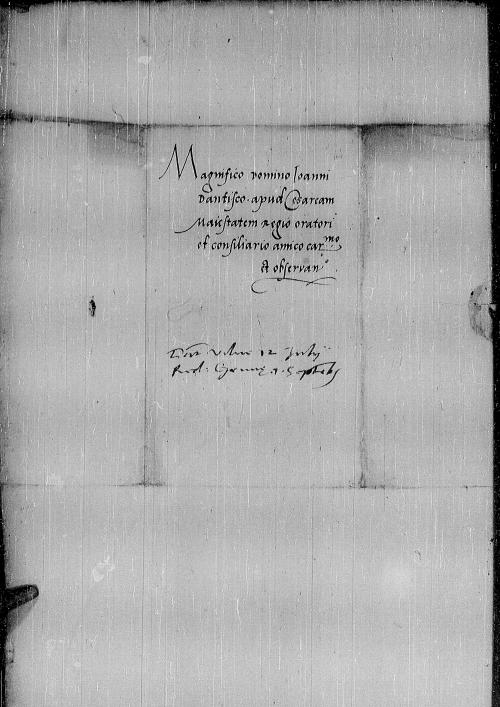 Magnifico domino Ioanni
Dantisco apud Cesaream
Maiestatem Regio oratori
et consiliario amico car.mo
et observan.o
Dat Vilne 12 Julij
Red: 9 Septebris